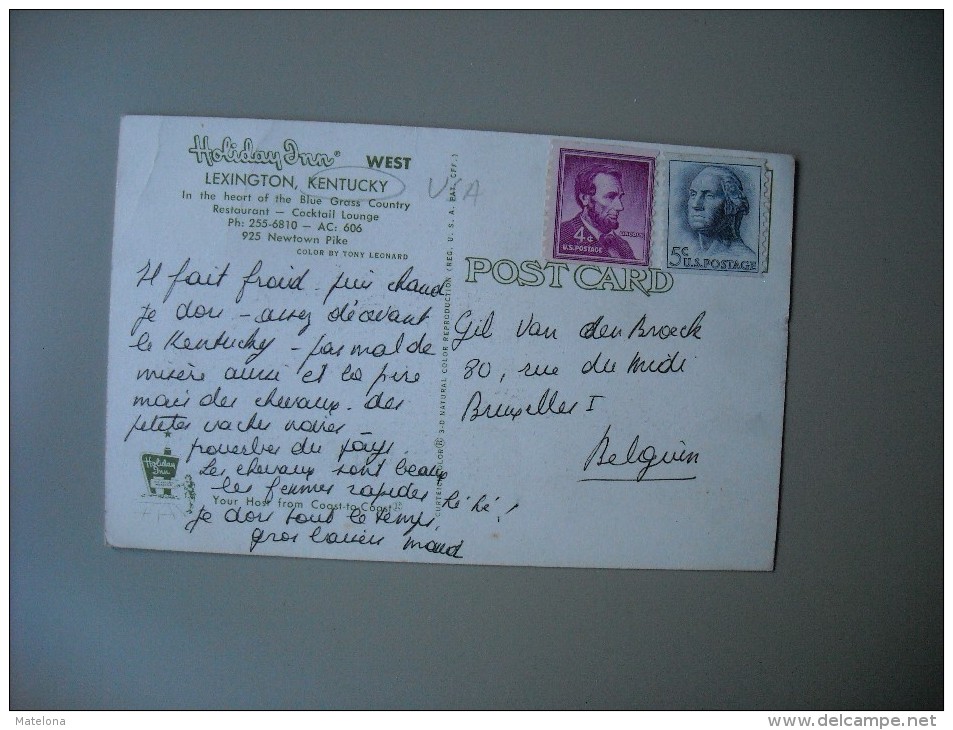 Holiday Inn® WEST
LEXINGTON, KENTUCKY
USA
In the heart of the Blue Grass Country
Restaurant — Cocktail Lounge
Ph: 255-6810 — AC: 606
925 Newtown Pike
COLOR BY TONY LEONARD
4¢
LINCOLN
U.S. POSTAGE
5¢
U.S. POSTAGE
POST CARD
Il fait froid - puis chaud
je dors - assez décevant
le Kentucky - pas mal de
misère aussi et la pire
mais des chevaux - des
petites vaches noires -
proverbes du pays -
Les chevaux sont beaux
les femmes rapides hé hé!
Je dors tout le temps,
gros baiser maud
Gil Van den Broeck
80, rue du Midi
Bruxelles I
Belguim
Holiday Inn
Your Host from Coast to Coast
CURTEICHCOLOR® 3-D NATURAL COLOR REPRODUCTION (REG. U. S. A. PAT. OFF.)
Matelona
www.delcampe.net